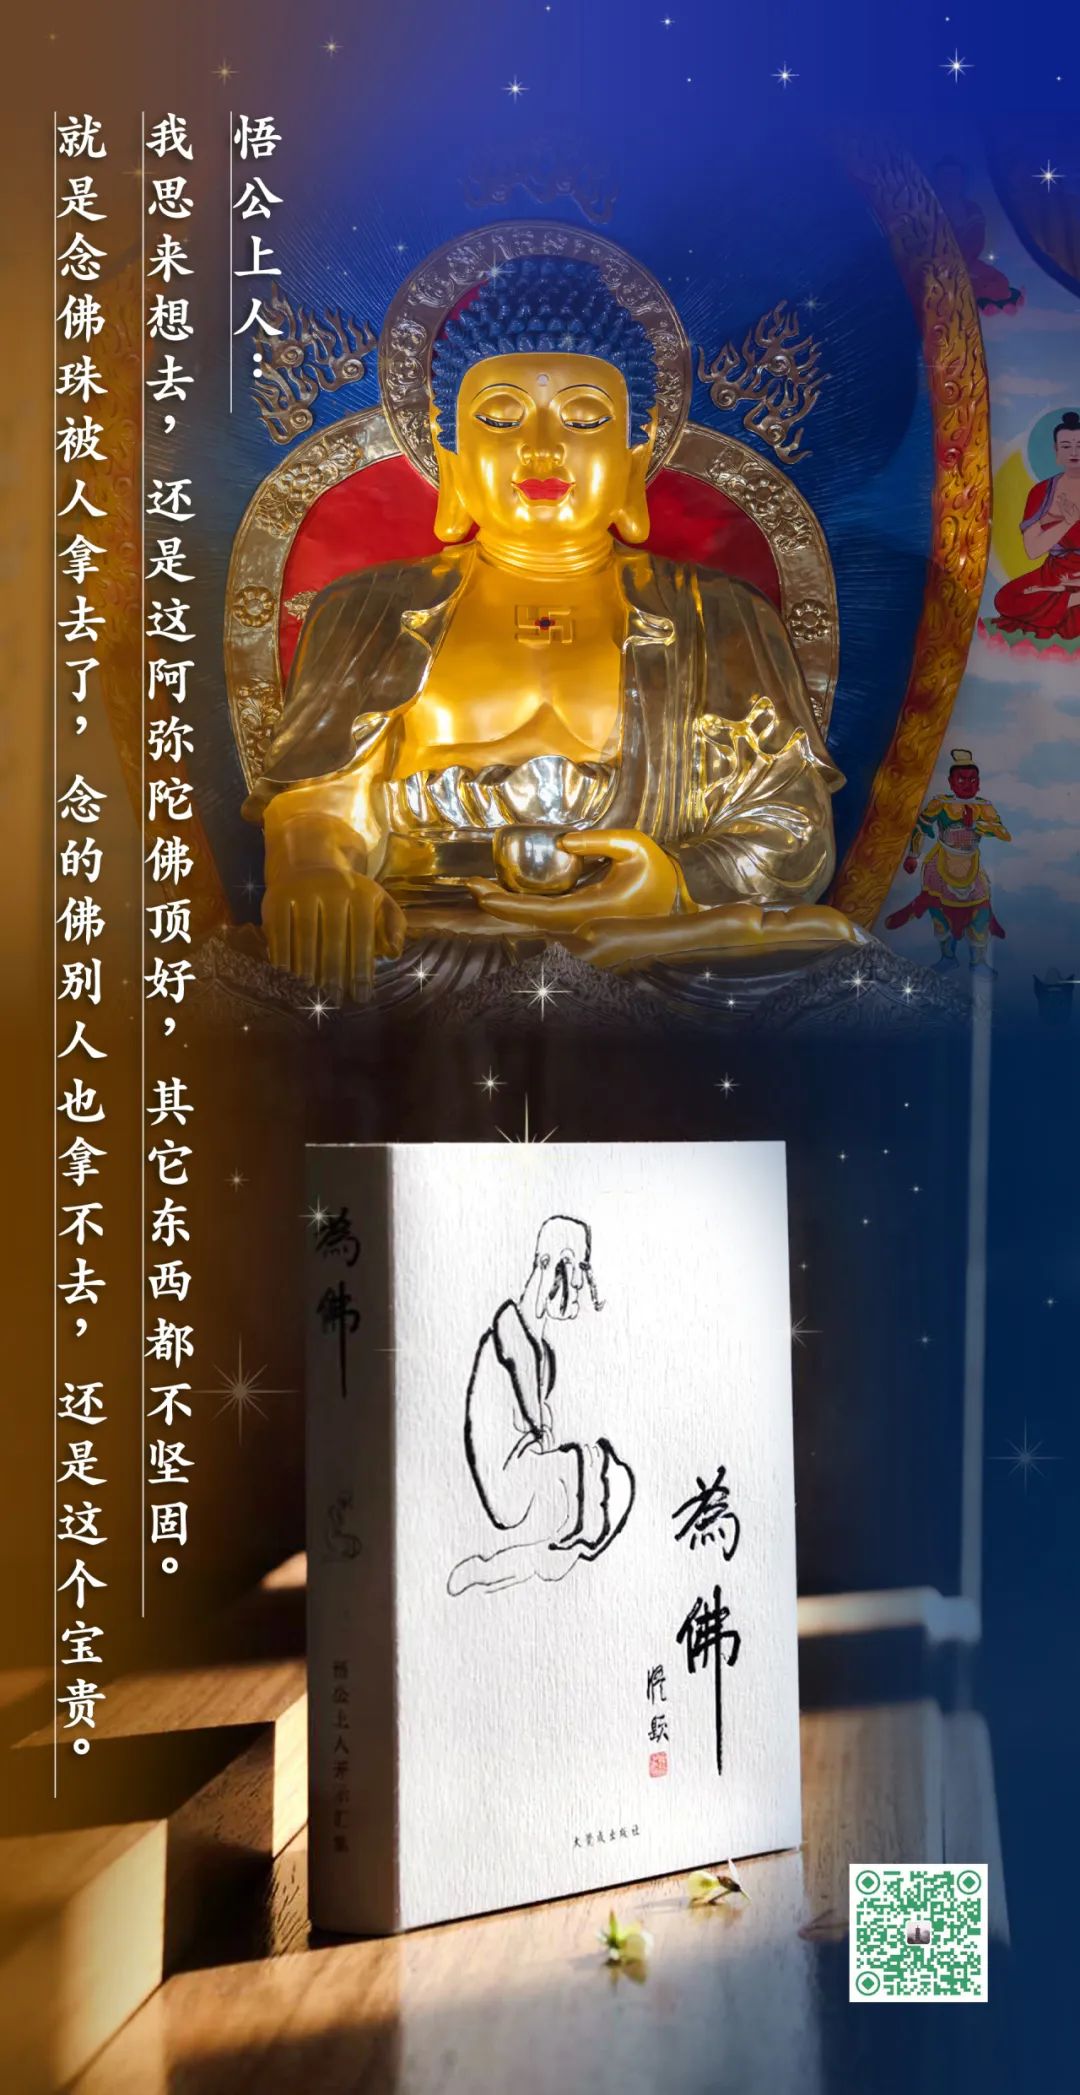 悟公上人：
我思来想去，还是这阿弥陀佛顶好，其它东西都不坚固。
就是念佛珠被人拿去了，念的佛别人也拿不去，还是这个宝贵。
為佛
為佛
悟公上人开示汇集
大觉成出版社